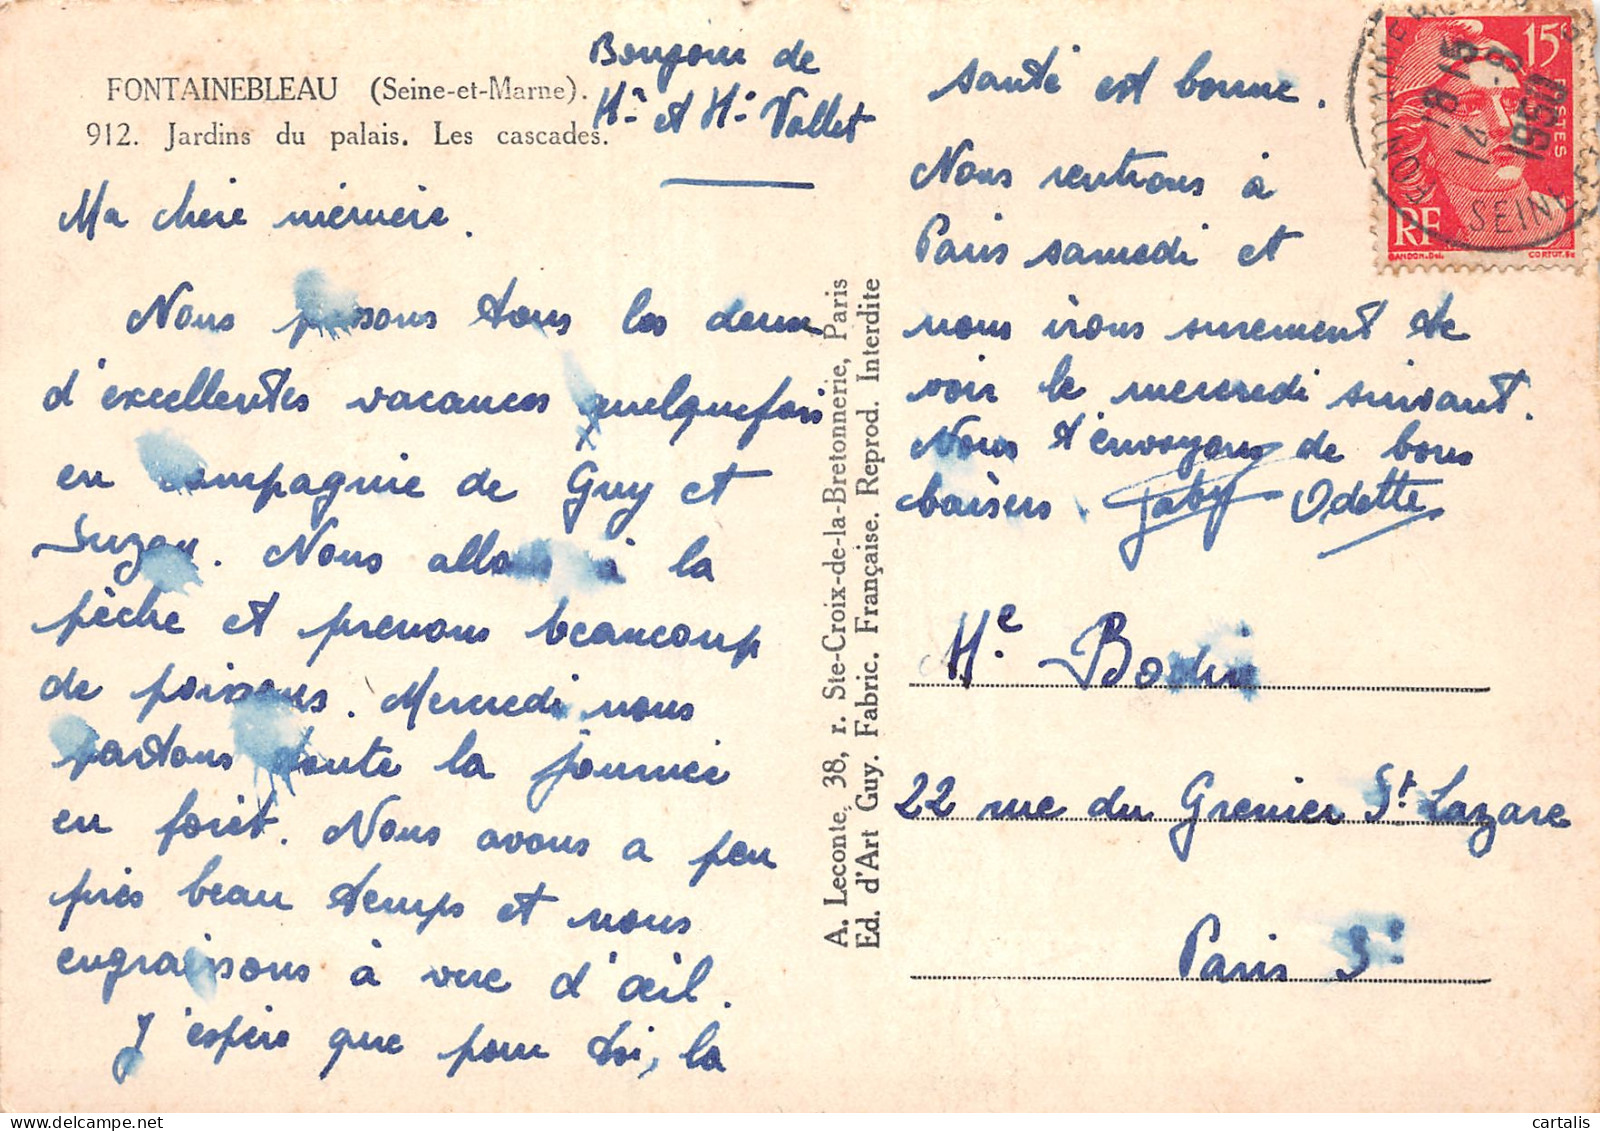 FONTAINEBLEAU (Seine-et-Marne).
912. Jardins du palais. Les cascades.
Bonjour de
Mr et Me Vallet
Ma chère mémère.
Nous passons tous les deux
d'excellentes vacances quelquefois
en compagnie de Guy et
Suzon. Nous allons à la
pêche et prenons beaucoup
de poissons. Mercredi nous
partons toute la journée
en forêt. Nous avons a peu
près beau temps et nous
engraissons à vue d'œil.
J'espère que pour toi, la
santé est bonne.
Nous rentrons à
Paris samedi et
nous irons surement te
voir le mercredi suivant.
Nous t'envoyons de bons
baisers. Gaby Odette
A. Leconte, 38, r. Ste-Croix-de-la-Bretonnerie, Paris
Ed. d'Art Guy. Fabric. Française. Reprod. Interdite
15c
POSTES
RF
GANDON. Del.
CORTOT. Sc
18 15
14 -9
1950
SEINE
Me Bodin
22 rue du Grenier St Lazare
Paris 3e
cartalis